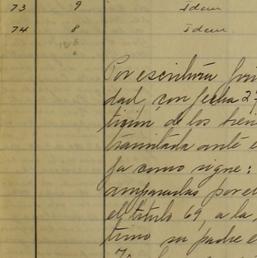 73 9 Idem
74 8 Idem
Por escritura
dad, con fecha 27
ticion de los bien
tramitada ante e
ja como signe:
amparadas por e
el titulo 69, a la
timo su padre e